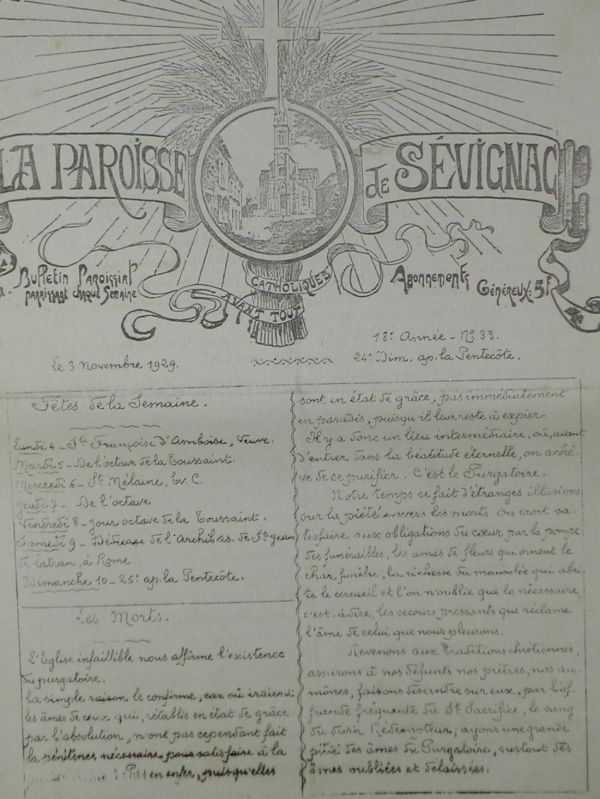 LA PAROISSE de SÉVIGNAC
Bulletin Paroissial
paraissant chaque Semaine
CATHOLIQUES
AVANT TOUT
Abonnements
Généreux: 5F
18e Année - No 33.
Le 3 Novembre 1929.
24e Dim. ap. la Pentecôte.
Fêtes de la Semaine.
Lundi 4 - Ste Françoise d'Amboise, Veuve.
Mardi 5 - De l'octave de la Toussaint.
Mercredi 6 - St Mélaine, Ev. C.
Jeudi 7 - De l'octave
Vendredi 8 - jour octave de la Toussaint.
Samedi 9 - Dédicace de l'Archibas. de St Jean
de Latran, à Rome
Dimanche 10 - 25e ap. la Pentecôte.
Les Morts.
L'Eglise infaillible nous affirme l'existence
du purgatoire.
La simple raison le confirme, car où iraient
les âmes de ceux qui, rétablis en état de grâce
par l'absolution, n'ont pas cependant fait
la pénitence nécessaire pour satisfaire à la
Pas en enfer, puisqu'elles
sont en état de grâce, pas immédiatement
en paradis, puisqu'il leur reste à expier.
Il y a donc un lieu intermédiaire, où, avant
d'entrer dans la béatitude éternelle, on achè-
ve de se purifier. C'est le Purgatoire.
Notre temps se fait d'étranges illusions
sur la piété envers les morts. On croit sa-
tisfaire aux obligations du cœur par la pompe
des funérailles, les amas de fleurs qui ornent le
char funèbre, la richesse du mausolée qui abri-
te le cercueil et l'on n'oublie que le nécessaire,
c'est-à-dire, les secours pressants que réclame
l'âme de celui que nous pleurons.
Revenons aux traditions chrétiennes,
assurons à nos défunts nos prières, nos au-
mônes, faisons descendre sur eux, par l'of-
frande fréquente du St Sacrifice, le sang
du divin Rédempteur; ayons une grande
pitié des âmes du Purgatoire, surtout des
âmes oubliées et délaissées.